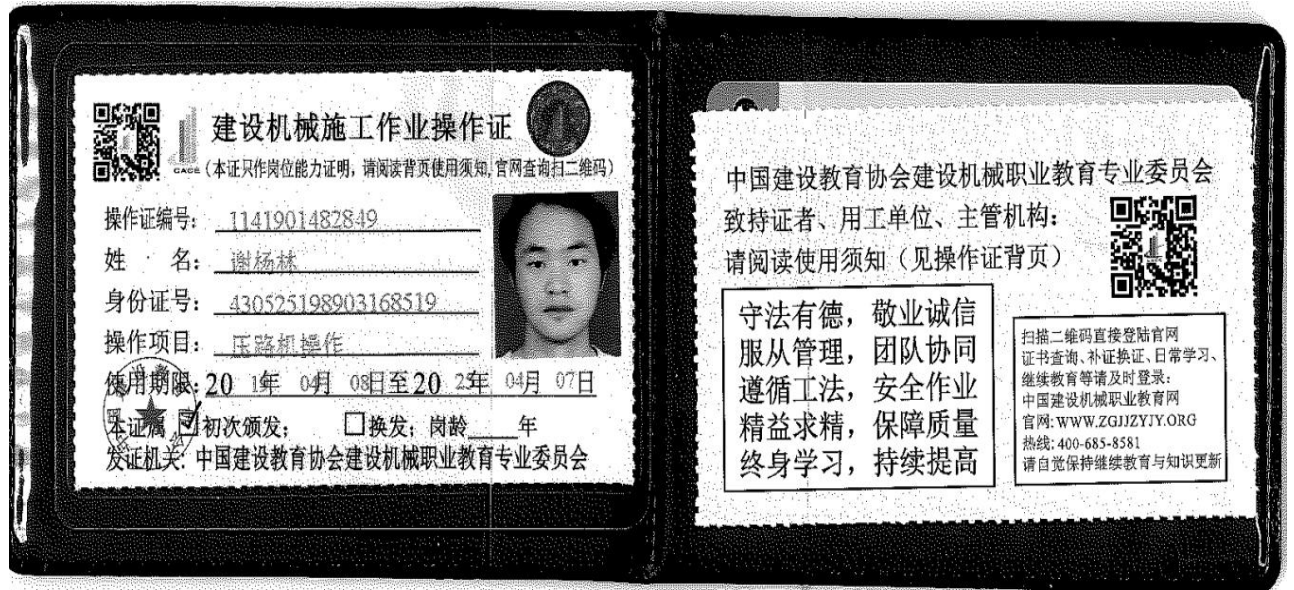 建设机械施工作业操作证
CACE
(本证只作岗位能力证明，请阅读背页使用须知,官网查询扫二维码)
操作证编号： 1141901482849
姓 名： 谢杨林
身份证号： 430525198903168519
操作项目： 压路机操作
使用期限：20 19年 04月 08日至20 23年 04月 07日
本证属 ☑初次颁发； □换发；岗龄____年
发证机关: 中国建设教育协会建设机械职业教育专业委员会
中国建设教育协会建设机械职业教育专业委员会
致持证者、用工单位、主管机构：
请阅读使用须知（见操作证背页）
守法有德，敬业诚信
服从管理，团队协同
遵循工法，安全作业
精益求精，保障质量
终身学习，持续提高
扫描二维码直接登陆官网
证书查询、补证换证、日常学习、
继续教育等请及时登录：
中国建设机械职业教育网
官网: WWW.ZGJJZYJY.ORG
热线: 400-685-8581
请自觉保持继续教育与知识更新